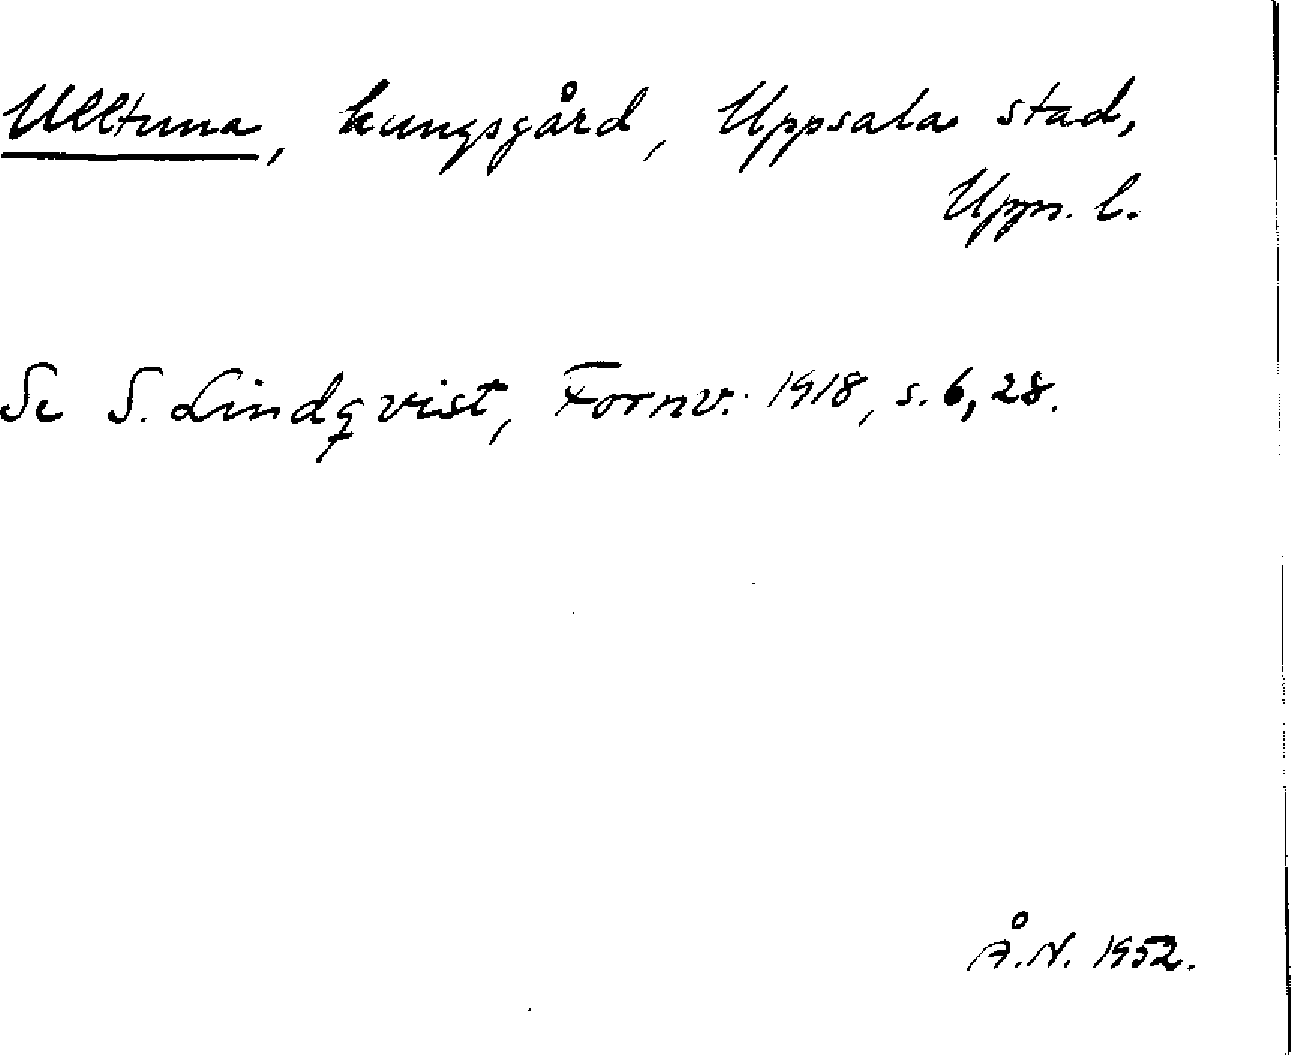 Ulltuna, kungsgård, Uppsala stad,
Upps. l.
Se S. Lindqvist, Fornv. 1918, s. 6, 28.
Å.N. 1952.